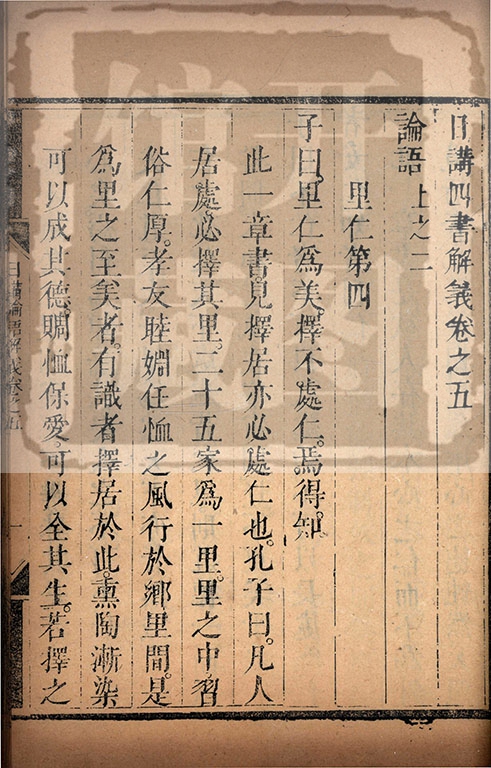 日講四書解義卷之五
論語 上之二
里仁第四
子曰。里仁爲美。擇不處仁。焉得知。
此一章書見擇居亦必處仁也。孔子曰。凡人
居處必擇其里。二十五家爲一里。里之中習
俗仁厚。孝友睦婣任恤之風行於鄉里間。是
爲里之至美者。有識者擇居於此。熏陶漸染
可以成其德。賙恤保愛。可以全其生。若擇之
日講論語解義卷之五 一